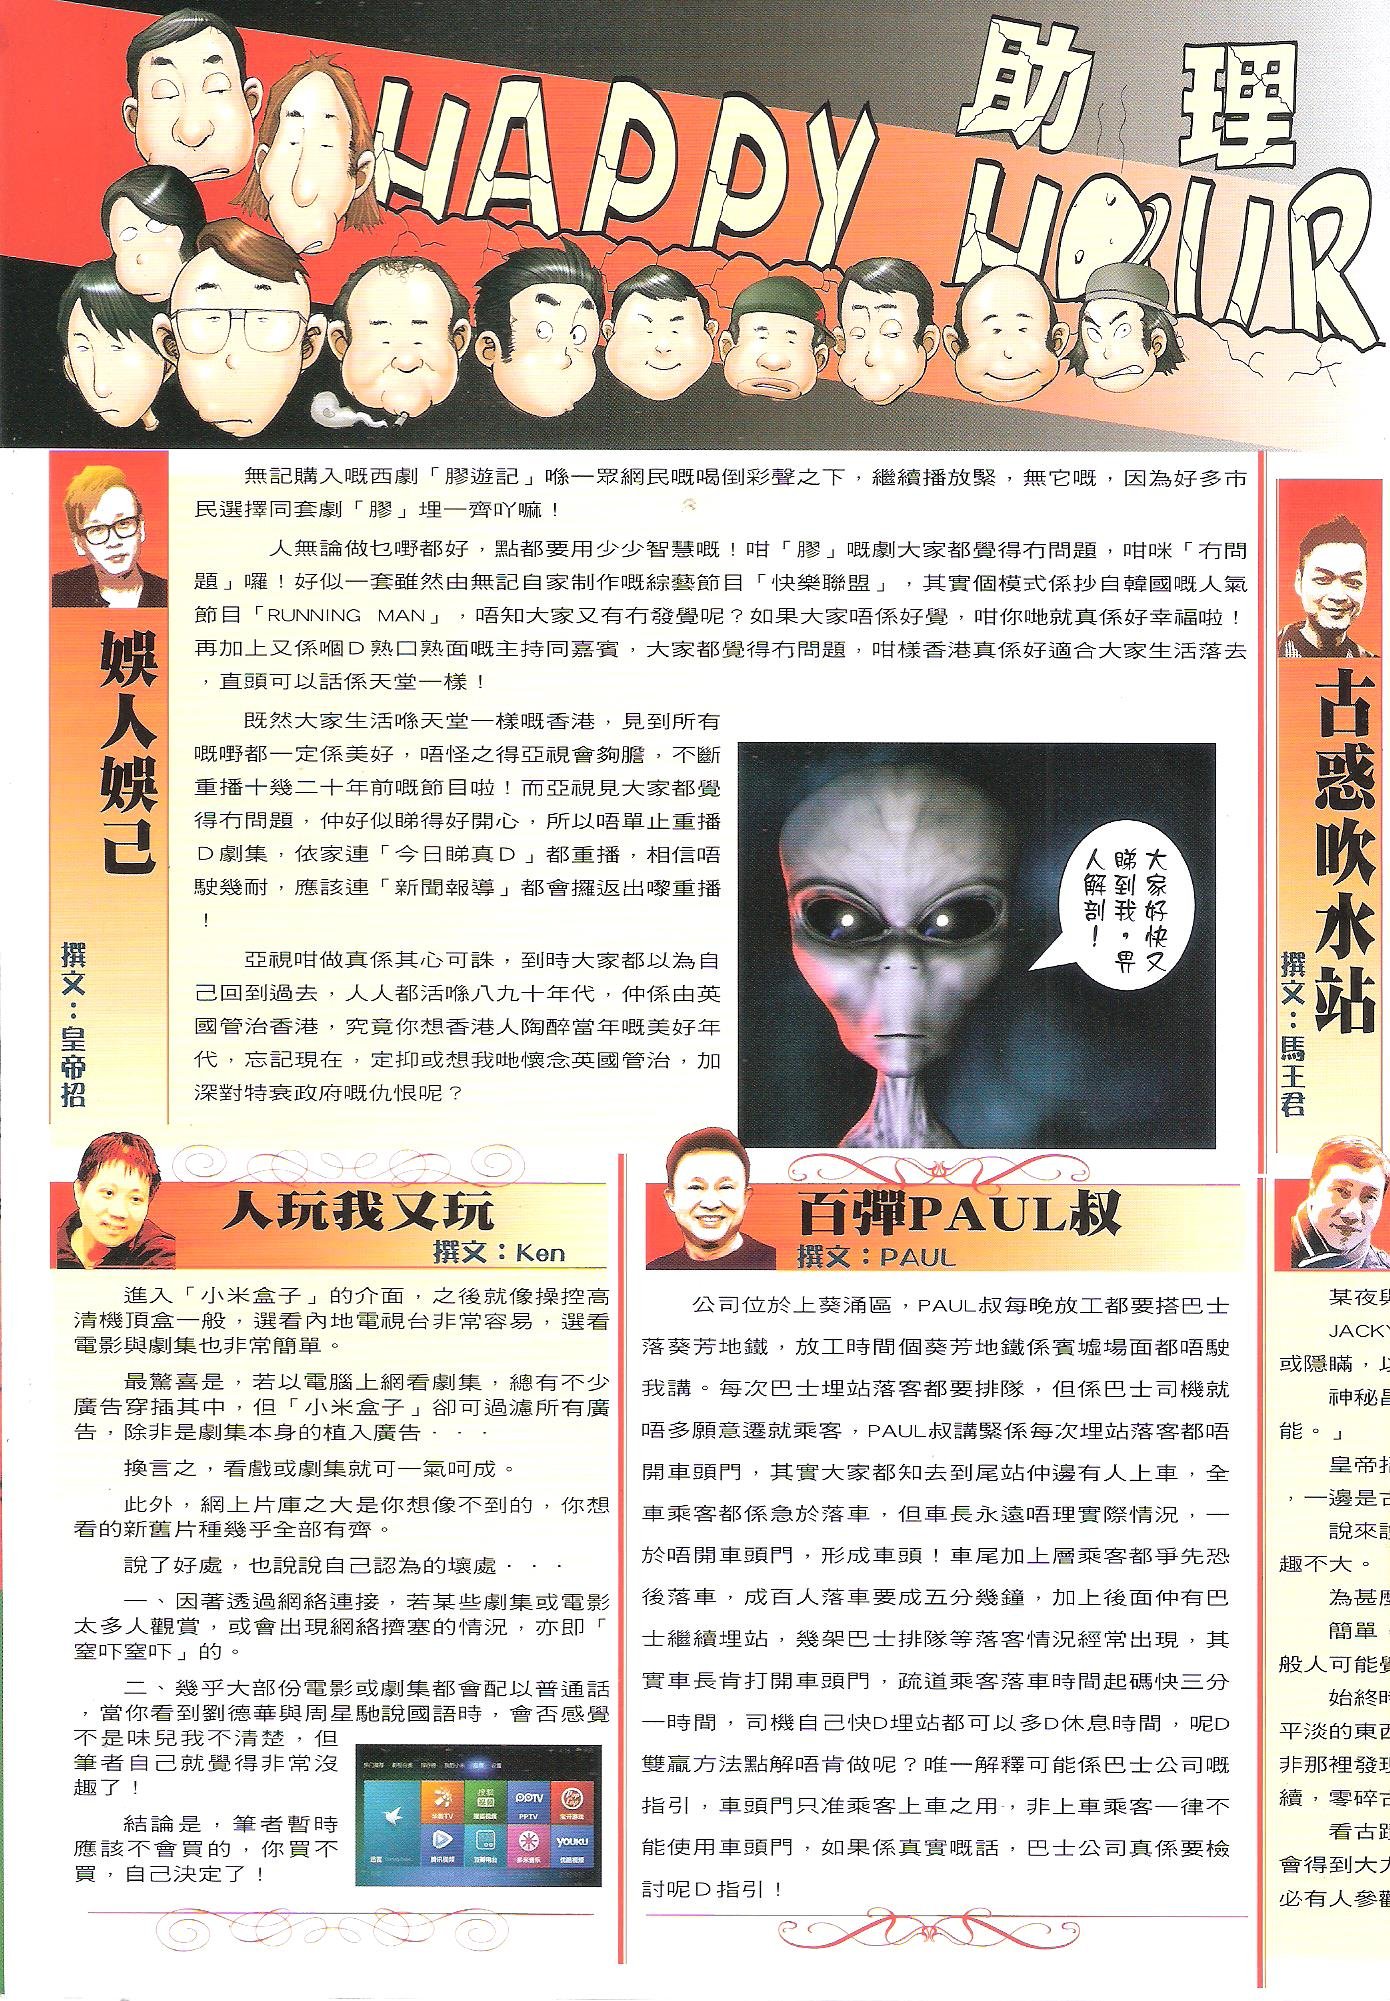 助理
HAPPY HOUR
娛人娛己
撰文：皇帝招
無記購入嘅西劇「膠遊記」喺一眾網民嘅喝倒彩聲之下，繼續播放緊，無它嘅，因為好多市
民選擇同套劇「膠」埋一齊吖嘛！
人無論做乜嘢都好，點都要用少少智慧嘅！咁「膠」嘅劇大家都覺得冇問題，咁咪「冇問
題」囉！好似一套雖然由無記自家制作嘅綜藝節目「快樂聯盟」，其實個模式係抄自韓國嘅人氣
節目「RUNNING MAN」，唔知大家又有冇發覺呢？如果大家唔係好覺，咁你哋就真係好幸福啦！
再加上又係嗰D熟口熟面嘅主持同嘉賓，大家都覺得冇問題，咁樣香港真係好適合大家生活落去
，直頭可以話係天堂一樣！
既然大家生活喺天堂一樣嘅香港，見到所有
嘅嘢都一定係美好，唔怪之得亞視會夠膽，不斷
重播十幾二十年前嘅節目啦！而亞視見大家都覺
得冇問題，仲好似睇得好開心，所以唔單止重播
D劇集，依家連「今日睇真D」都重播，相信唔
駛幾耐，應該連「新聞報導」都會攞返出嚟重播
！
亞視咁做真係其心可誅，到時大家都以為自
己回到過去，人人都活喺八九十年代，仲係由英
國管治香港，究竟你想香港人陶醉當年嘅美好年
代，忘記現在，定抑或想我哋懷念英國管治，加
深對特衰政府嘅仇恨呢？
大家好快又
睇到我，畀
人解剖！
古惑吹水站
撰文：馬王君
人玩我又玩
撰文：Ken
進入「小米盒子」的介面，之後就像操控高
清機頂盒一般，選看內地電視台非常容易，選看
電影與劇集也非常簡單。
最驚喜是，若以電腦上網看劇集，總有不少
廣告穿插其中，但「小米盒子」卻可過濾所有廣
告，除非是劇集本身的植入廣告．．．
換言之，看戲或劇集就可一氣呵成。
此外，網上片庫之大是你想像不到的，你想
看的新舊片種幾乎全部有齊。
說了好處，也說說自己認為的壞處．．．
一、因著透過網絡連接，若某些劇集或電影
太多人觀賞，或會出現網絡擠塞的情況，亦即「
窒吓窒吓」的。
二、幾乎大部份電影或劇集都會配以普通話
，當你看到劉德華與周星馳說國語時，會否感覺
不是味兒我不清楚，但
筆者自己就覺得非常沒
趣了！
結論是，筆者暫時
應該不會買的，你買不
買，自己決定了！
PPTV
PPTV
YOUKU
百彈PAUL叔
撰文：PAUL
公司位於上葵涌區，PAUL叔每晚放工都要搭巴士
落葵芳地鐵，放工時間個葵芳地鐵係賓墟場面都唔駛
我講。每次巴士埋站落客都要排隊，但係巴士司機就
唔多願意遷就乘客，PAUL叔講緊係每次埋站落客都唔
開車頭門，其實大家都知去到尾站仲邊有人上車，全
車乘客都係急於落車，但車長永遠唔理實際情況，一
於唔開車頭門，形成車頭！車尾加上層乘客都爭先恐
後落車，成百人落車要成五分幾鐘，加上後面仲有巴
士繼續埋站，幾架巴士排隊等落客情況經常出現，其
實車長肯打開車頭門，疏道乘客落車時間起碼快三分
一時間，司機自己快D埋站都可以多D休息時間，呢D
雙贏方法點解唔肯做呢？唯一解釋可能係巴士公司嘅
指引，車頭門只准乘客上車之用，非上車乘客一律不
能使用車頭門，如果係真實嘅話，巴士公司真係要檢
討呢D指引！
某夜與
JACKY
或隱瞞，以
神秘昌
能。」
皇帝招
，一邊是古
說來說
趣不大。
為甚麼
簡單，
般人可能覺
始終時
平淡的東西
非那裡發現
續，零碎古
看古蹟
會得到大力
必有人參觀